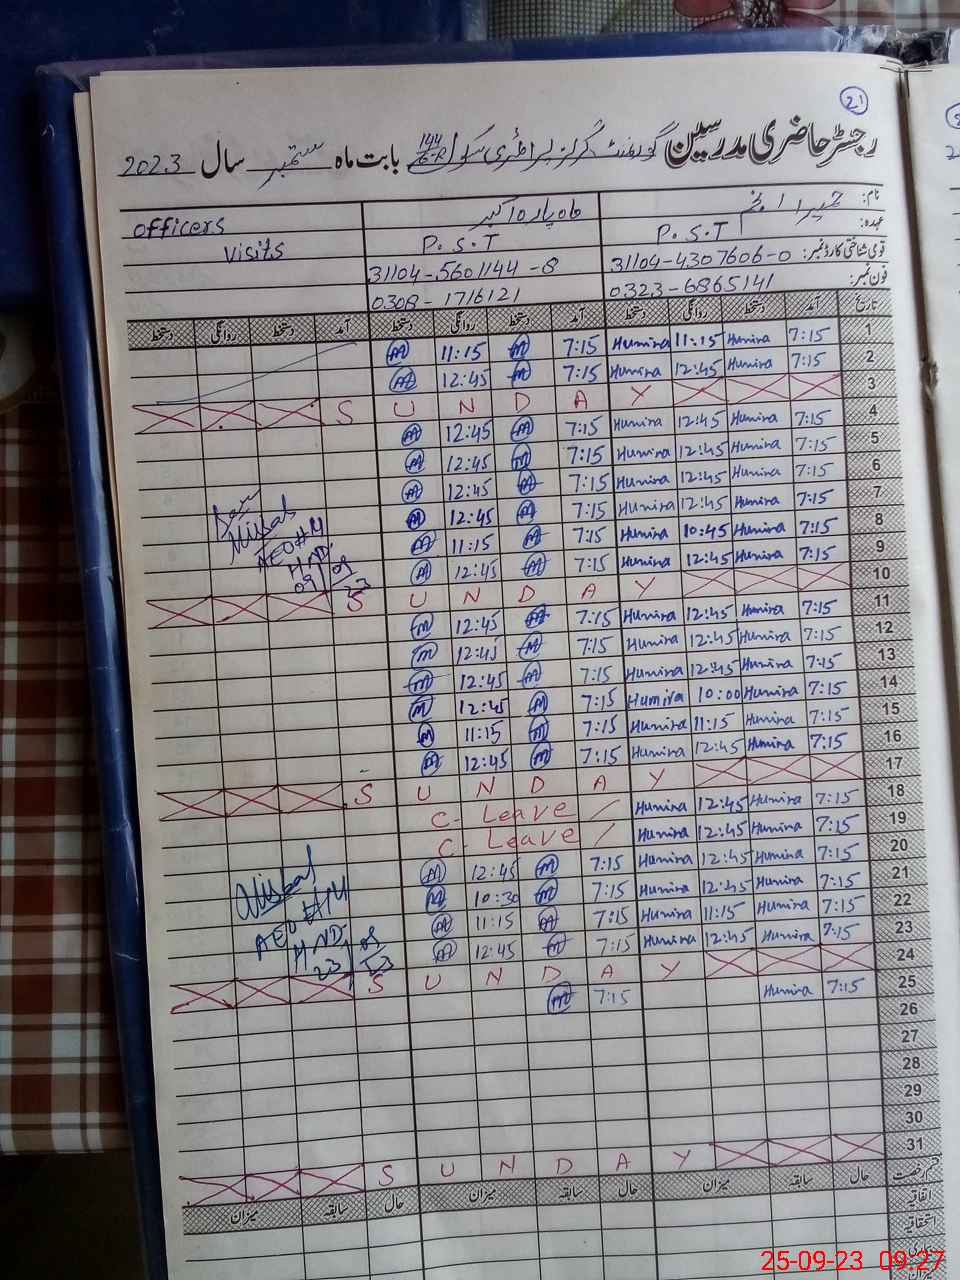 21
رجسٹر حاضری مدرسین گورنمنٹ گرلز پرائمری سکول 144/6-R بابت ماہ ستمبر سال 2023
نام: حمیرا انجم ماہ پارہ اکبر officers
عہدہ: P.S.T P.S.T visits
قومی شناختی کارڈ نمبر: 31104-4307606-0 31104-5601144-8
فون نمبر: 0323-6865141 0308-1716121
تاریخ آمد دستخط روانگی دستخط آمد دستخط روانگی دستخط آمد دستخط روانگی دستخط
1 7:15 Humira 11:15 Humira 7:15 M 11:15 M
2 7:15 Humira 12:45 Humira 7:15 M 12:45 M
3 S U N D A Y
4 7:15 Humira 12:45 Humira 7:15 M 12:45 M
5 7:15 Humira 12:45 Humira 7:15 M 12:45 M
6 7:15 Humira 12:45 Humira 7:15 M 12:45 M
7 7:15 Humira 12:45 Humira 7:15 M 12:45 M
8 7:15 Humira 10:45 Humira 7:15 M 11:15 M
9 7:15 Humira 12:45 Humira 7:15 M 12:45 M
Misbah
AEO#M
HND
09/09/23
10 S U N D A Y
11 7:15 Humira 12:45 Humira 7:15 M 12:45 M
12 7:15 Humira 12:45 Humira 7:15 M 12:45 M
13 7:15 Humira 12:45 Humira 7:15 M 12:45 M
14 7:15 Humira 10:00 Humira 7:15 M 12:45 M
15 7:15 Humira 11:15 Humira 7:15 M 11:15 M
16 7:15 Humira 12:45 Humira 7:15 M 12:45 M
17 S U N D A Y
18 7:15 Humira 12:45 Humira C. Leave /
19 7:15 Humira 12:45 Humira C. Leave /
20 7:15 Humira 12:45 Humira 7:15 M 12:45 M
21 7:15 Humira 12:45 Humira 7:15 M 10:30 M
22 7:15 Humira 11:15 Humira 7:15 M 11:15 M
23 7:15 Humira 12:45 Humira 7:15 M 12:45 M
Misbah
AEO#M
HND
23/09/23
24 S U N D A Y
25 7:15 Humira 7:15 M
26
27
28
29
30
31 S U N D A Y
قسم رخصت حال سابقہ میزان حال سابقہ میزان حال سابقہ میزان
اتفاقیہ
استحقاقیہ
بیماری
میزان
25-09-23 09:27